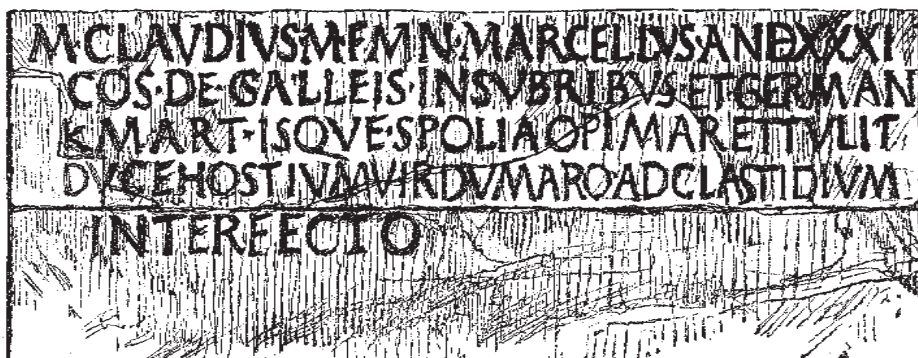 M·CLAVDIVS·M·F·M·N·MARCELLVS·AN·DXXXI
COS·DE·GALLEIS·INSVBRIBVS·ET·GERMAN
K·MART·ISQVE·SPOLIA OPIMA RETTVLIT
DVCE HOSTIVM VIRDVMARO·AD CLASTIDIVM
INTERFECTO